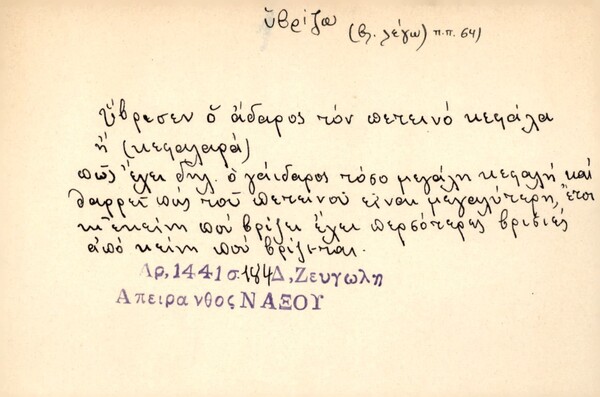 ὑβρίζω
(βλ. λέγω) π.π. 64)
Ὕβρεσεν ὁ ἄδαρος τόν πετεινό κεφάλα
ἤ (κεφαλαρά)
πῶς ἔχει δηλ. ὁ γάιδαρος τόσο μεγάλη κεφαλή καί
θαρρεῖ πώς τοῦ πετεινοῦ εἶναι μεγαλύτερη, ἔτσι
κι ἐκείνη πού βρίζει ἔχει περσότερες βρισιές
ἀπό κείνη πού βρίζεται.
Αρ, 1441 σ. 184 Δ, Ζευγώλη
Απειρανθος ΝΑΞΟΥ